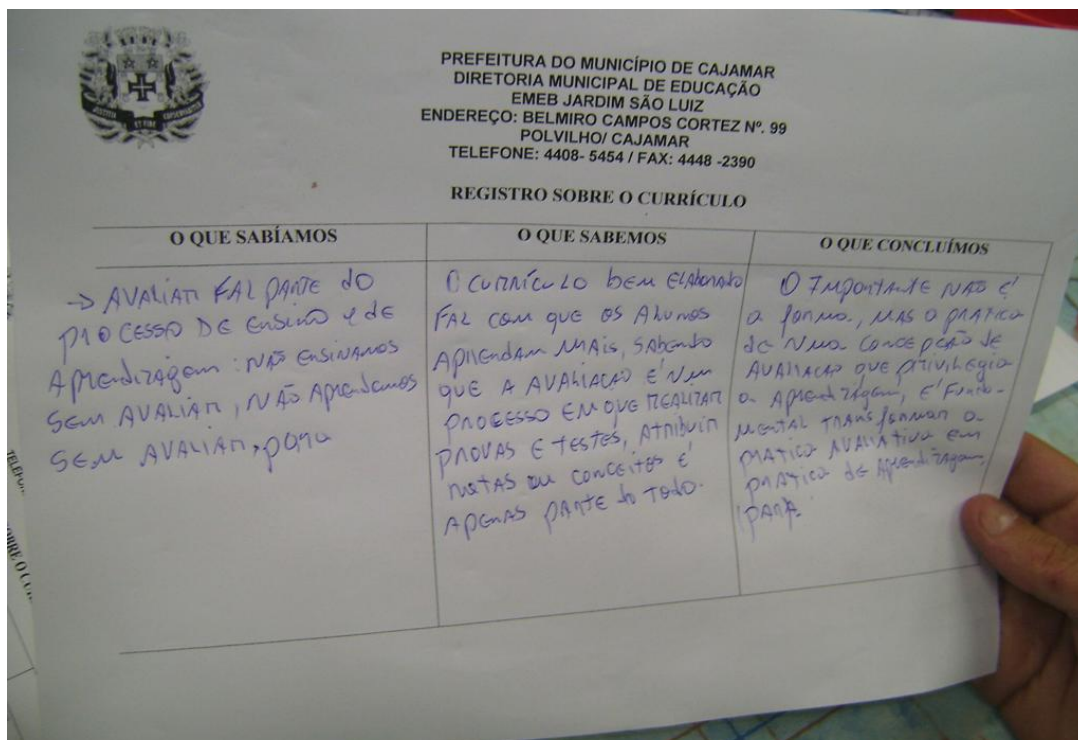 PREFEITURA DO MUNICÍPIO DE CAJAMAR
DIRETORIA MUNICIPAL DE EDUCAÇÃO
EMEB JARDIM SÃO LUIZ
ENDEREÇO: BELMIRO CAMPOS CORTEZ Nº. 99
POLVILHO/ CAJAMAR
TELEFONE: 4408- 5454 / FAX: 4448 -2390
REGISTRO SOBRE O CURRÍCULO
O QUE SABÍAMOS
-> AVALIAR FAZ PARTE do
PROCESSO DE ENSINO e de
Aprendizagem: NÃO ENSINAMOS
SEM AVALIAR, NÃO Aprendemos
SEM AVALIAR, para
O QUE SABEMOS
O CURRÍCULO bem Elaborado
FAZ com que os Alunos
Aprendam MAis, SAbendo
que A AVALIACAO É NUM
PROCESSO EM QUE REALIZAR
PROVAS E TESTES, Atribuir
NOTAS ou CONCEITOS É
APENAS PARTE do TODO.
O QUE CONCLUÍMOS
O IMPORTANTE NÃO É
a forma, MAS a prática
de Numa Concepção de
AVALIAÇÃO que privilegia
a Aprendizagem, É Funda-
MENTAL TRANSformar a
PRATICA AVALIATIVA em
PRATICA de Aprendizagem,
PARA.